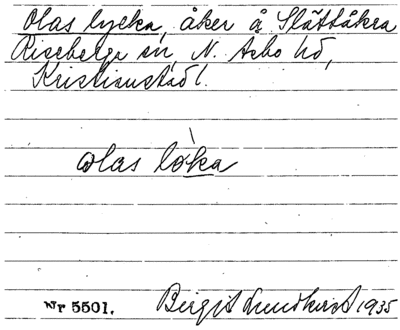 Olas lycka, åker å Slättåkra
Riseberga sn, N. Åsbo hd,
Kristianstad l.
olas lȯka
Nr 5501. Birgit Lundkvist 1935